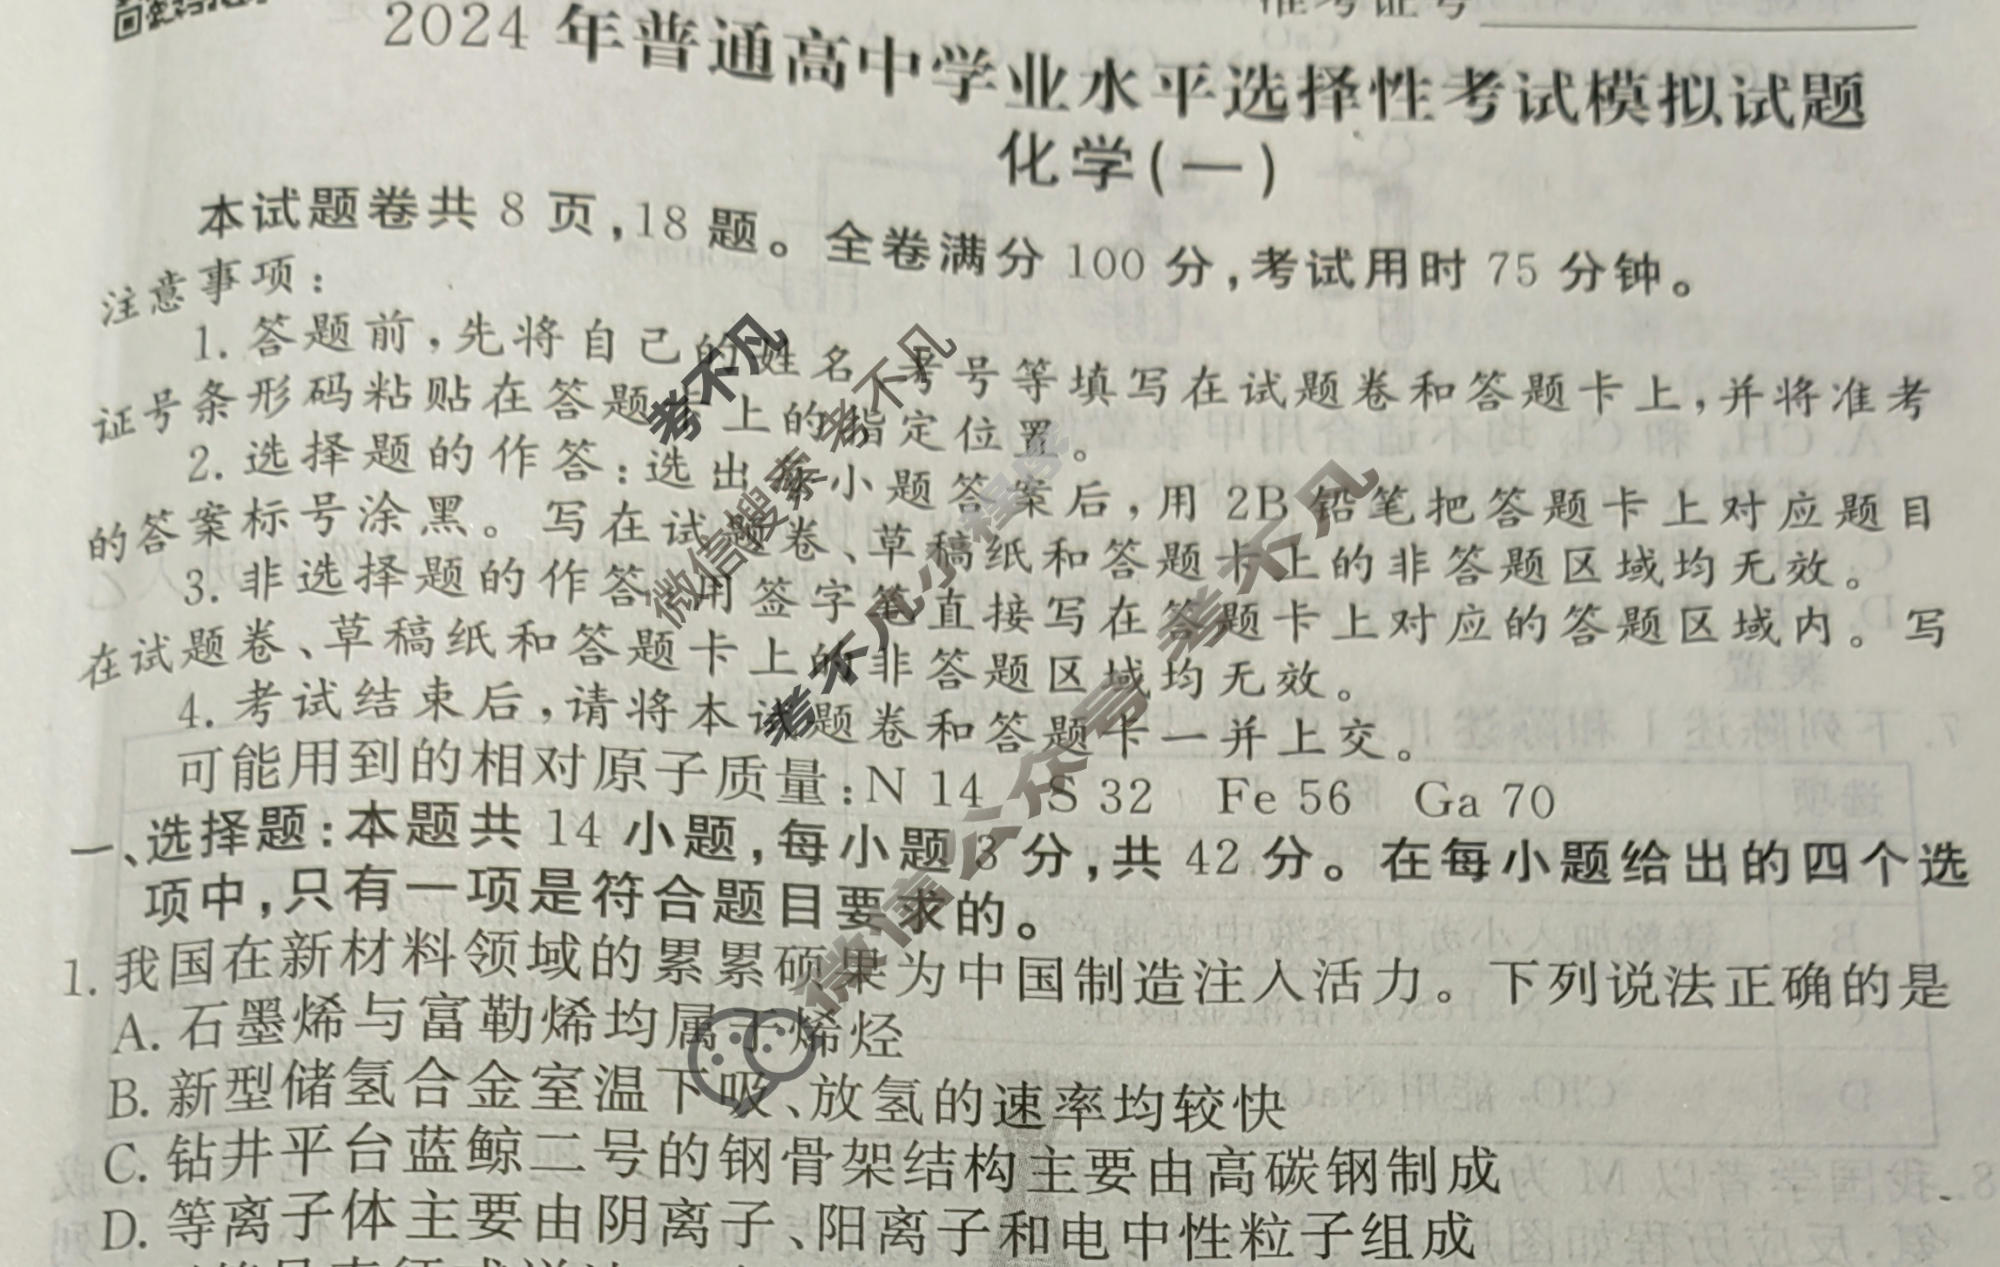 准考证号
2024 年普通高中学业水平选择性考试模拟试题
化学(一)
本试题卷共 8 页,18 题。全卷满分 100 分,考试用时 75 分钟。
注意事项:
1. 答题前,先将自己的姓名、考号等填写在试题卷和答题卡上,并将准考
证号条形码粘贴在答题卡上的指定位置。
2. 选择题的作答:选出每小题答案后,用 2B 铅笔把答题卡上对应题目
的答案标号涂黑。写在试题卷、草稿纸和答题卡上的非答题区域均无效。
3. 非选择题的作答:用签字笔直接写在答题卡上对应的答题区域内。写
在试题卷、草稿纸和答题卡上的非答题区域均无效。
4. 考试结束后,请将本试题卷和答题卡一并上交。
可能用到的相对原子质量:N 14 S 32 Fe 56 Ga 70
一、选择题:本题共 14 小题,每小题 3 分,共 42 分。在每小题给出的四个选
项中,只有一项是符合题目要求的。
1. 我国在新材料领域的累累硕果为中国制造注入活力。下列说法正确的是
A. 石墨烯与富勒烯均属于烯烃
B. 新型储氢合金室温下吸、放氢的速率均较快
C. 钻井平台蓝鲸二号的钢骨架结构主要由高碳钢制成
D. 等离子体主要由阴离子、阳离子和电中性粒子组成
考不凡
微信搜索 考不凡
考不凡小程序
微信公众号 考不凡